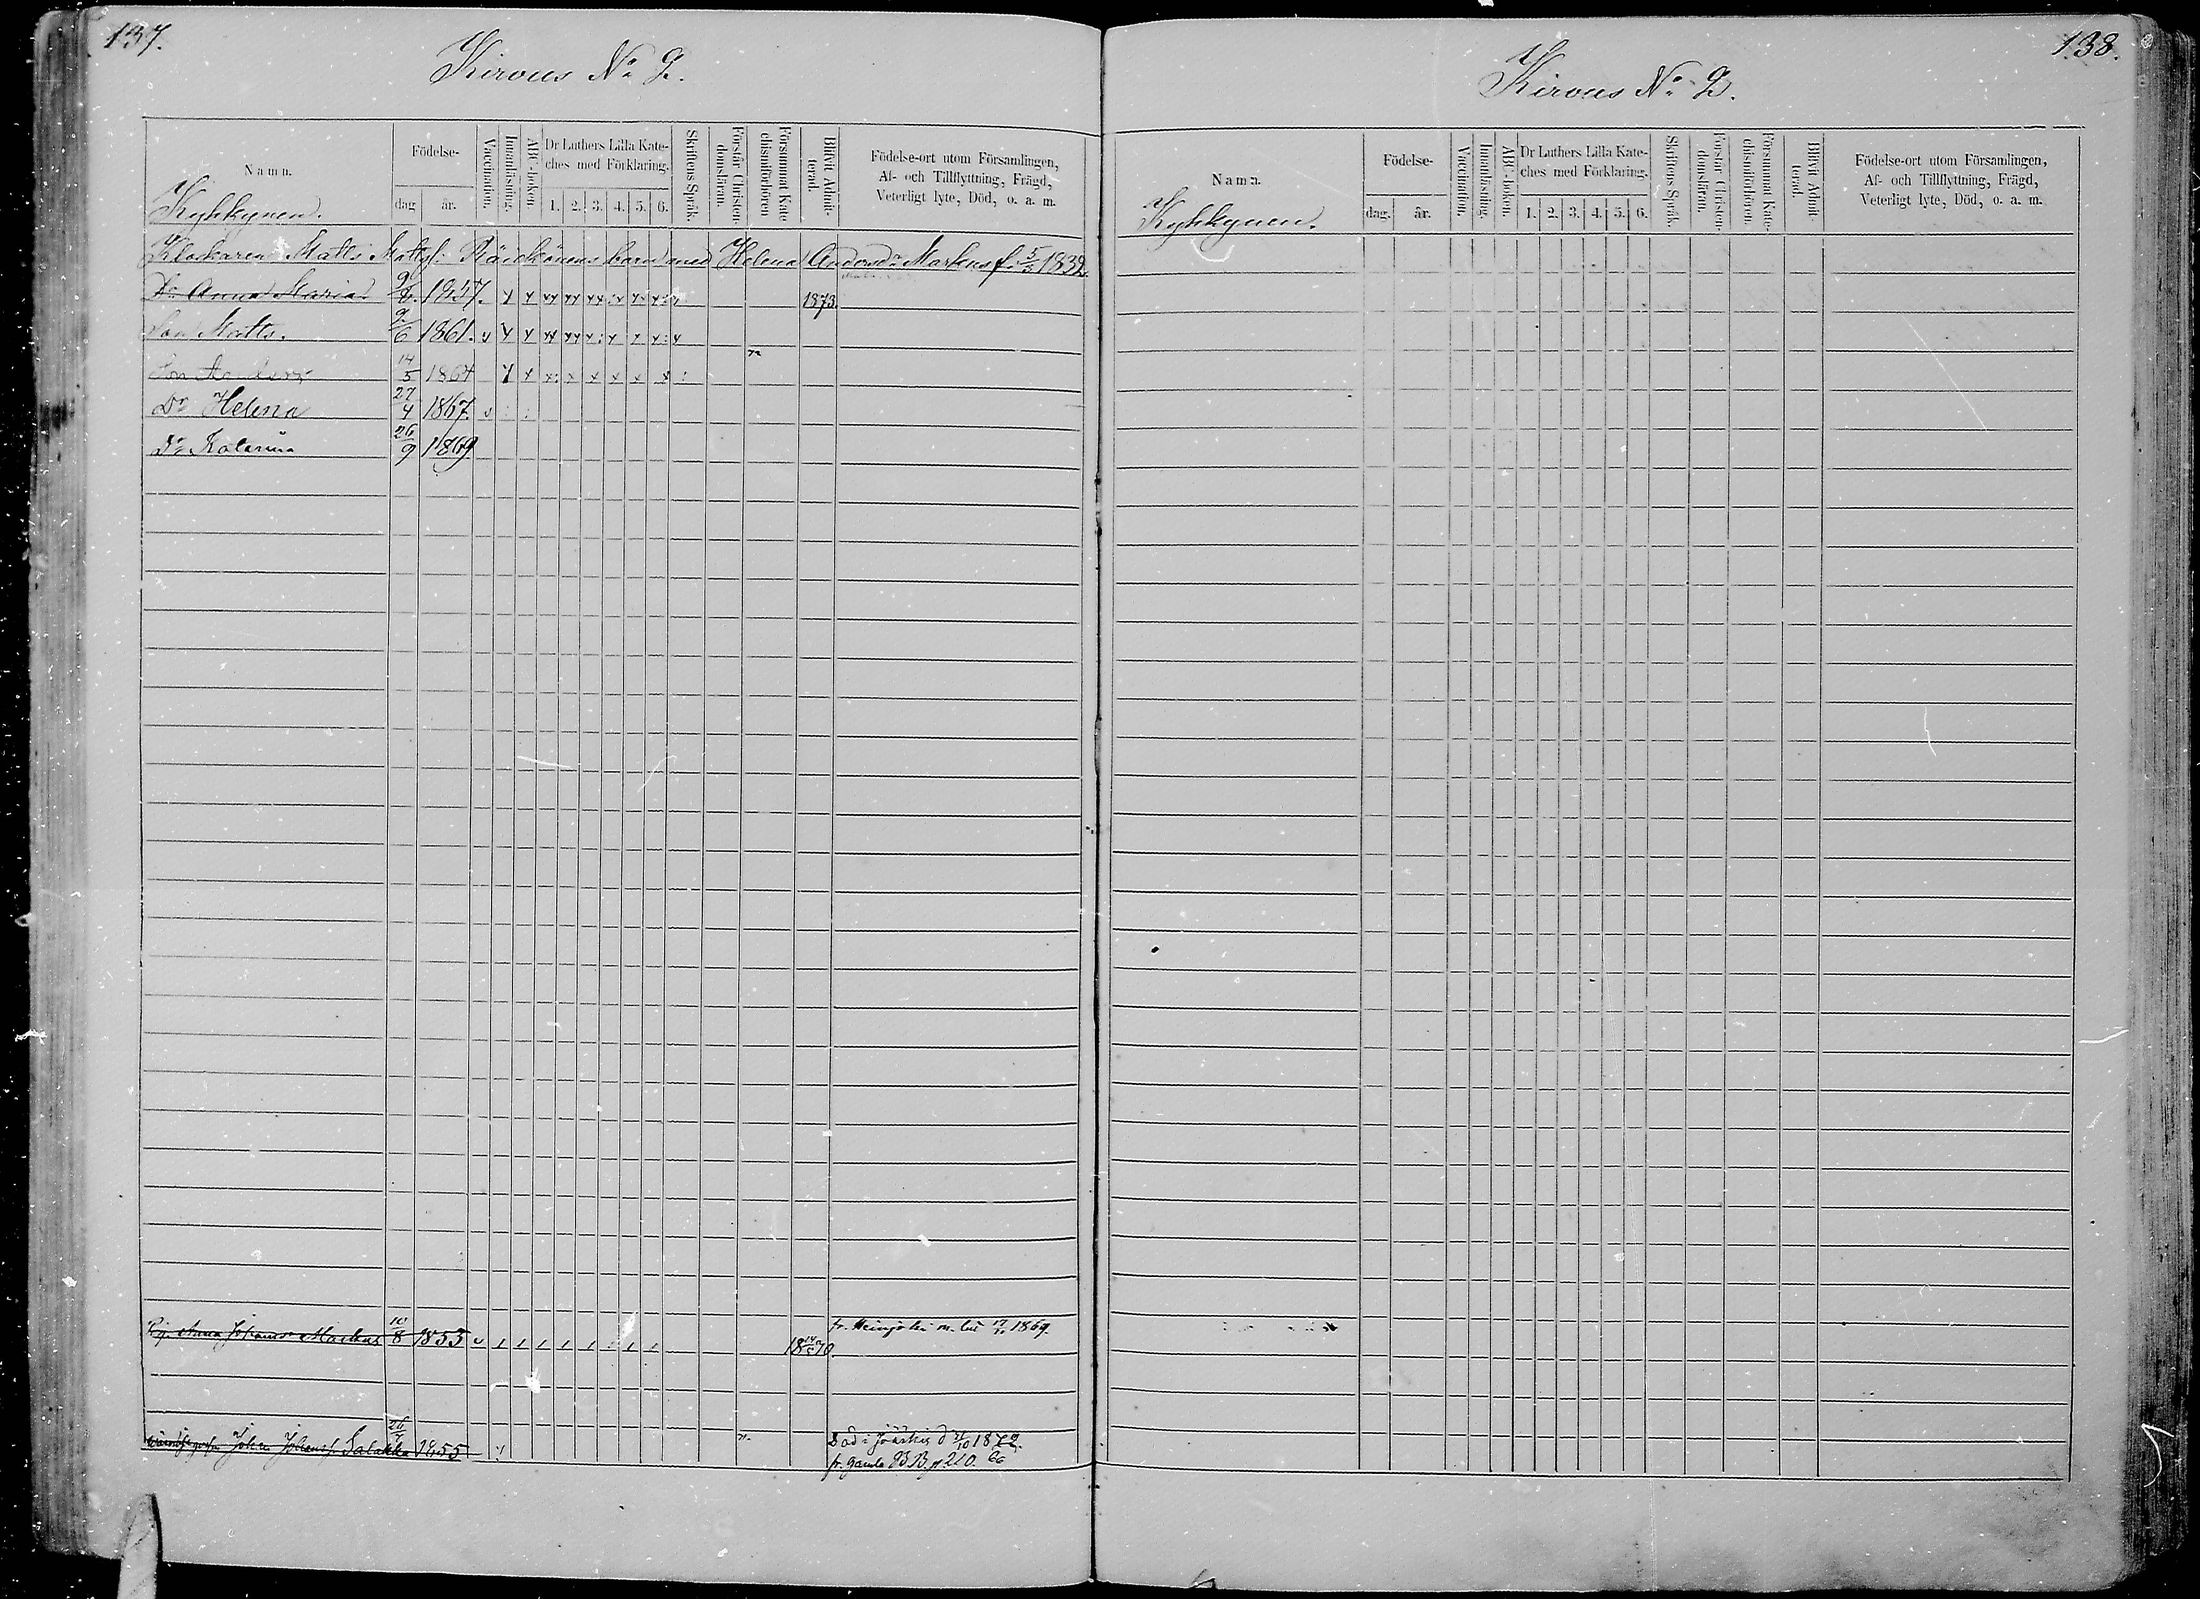 137.
Kirvus No 2.
Namn.
Kykkynen.
Födelse-
dag
år.
Vaccination.
Innanläsning.
ABC-boken.
Dr Luthers Lilla Kate-
ches med Förklaring.
1. 2. 3. 4. 5. 6.
Skriftens Språk.
Förstår Christen-
domsläran.
Försummat Kate-
chismiförhören
Blifvit Admit-
terad.
Födelse-ort utom Församlingen,
Af- och Tillflyttning, Frägd,
Veterligt lyte, Död, o. a. m.
Klockaren Matts Mattss: Räikkönens barn med Helena Andersdr Markus f. 5/5 1832.
Dr Anna Maria 9/8 1857. 1873.
Son Matts. 9/6 1861.
Son 14/5 1864
Dr Helena 27/4 1867.
Dr Katarina 26/9 1869
Pig. Anna Johansdr Markus 10/8 1853 1870 fr. Heinjoki m. bet 1869.
Johan Johanss Salakka 1855 Död i Jääskis d 1872.
fr. gamla B.B. p 210.
138.
Kirvus No 2.
Namn.
Kykkynen.
Födelse-
dag.
år.
Vaccination.
Innanläsning.
ABC-boken.
Dr Luthers Lilla Kate-
ches med Förklaring.
1. 2. 3. 4. 5. 6.
Skriftens Språk.
Förstår Christen-
domsläran.
Försummat Kate-
chismiförhören.
Blifvit Admit-
terad.
Födelse-ort utom Församlingen,
Af- och Tillflyttning, Frägd,
Veterligt lyte, Död, o. a. m.